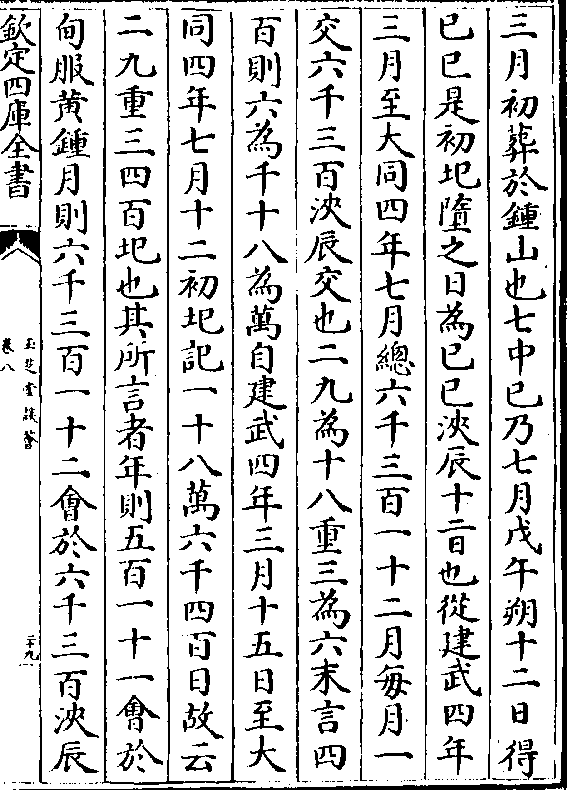 三月初葬於鍾山也七中已乃七月戊午朔十二日得
已巳是初圯墮之日為已巳浹辰十二日也從建武四年
三月至大同四年七月總六千三百一十二月每月一
交六千三百浹辰交也二九為十八重三為六末言四
百則六為千十八為萬自建武四年三月十五日至大
同四年七月十二初圯記一十八萬六千四百日故云
二九重三四百圯也其所言者年則五百一十一會於
旬服黄鍾月則六千三百一十二會於六千三百浹辰
欽定四庫全書
玉芝堂談薈
卷八
二十九